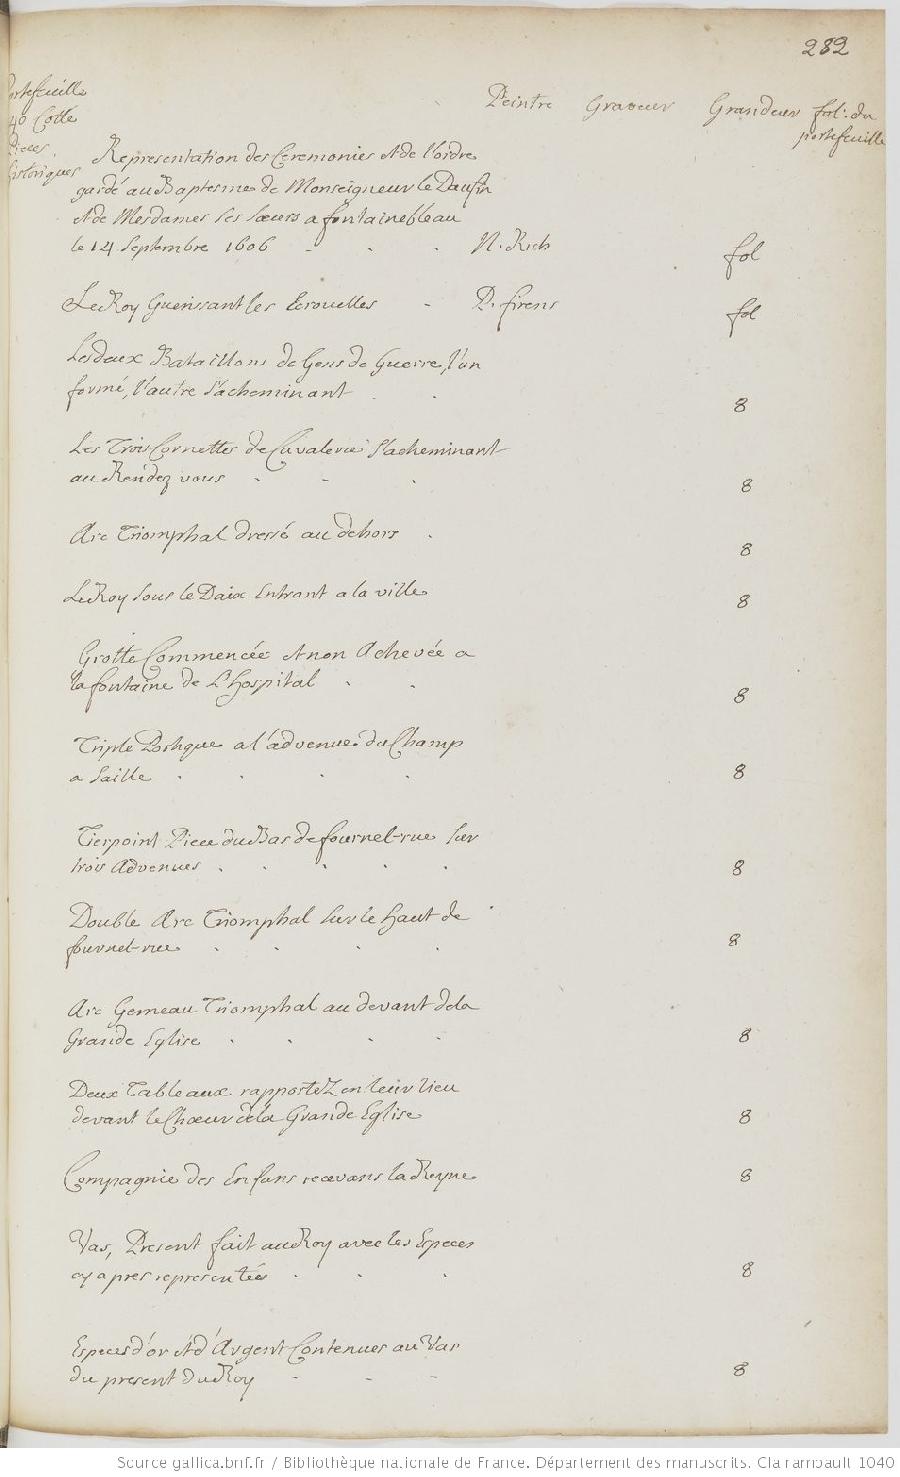 282
Portefeuille
40 Cotté
Pieces
historiques
Peintre Graveur Grandeur fol. du
portefeuille
Representation des Ceremonies et de l'ordre
gardé au Baptesme de Monseigneur le Daufin
et de Mesdames ses sœurs a fontainebleau
le 14 septembre 1606 N. Rich fol
Le Roy Guerissant les Ecrouelles P. firens fol
Les deux Bataillons de Gens de Guerre, l'un
formé, l'autre s'acheminant 8
Les Trois Cornettes de Cavalerie s'acheminant
au Rendez vous 8
Arc Triomphal dressé au dehors 8
Le Roy sous le Daix Entrant a la ville 8
Grotte Commencée et non Achevée a
la fontaine de L'hospital 8
Triple Portique a l'advenue du Champ
a Saille 8
Tierpoint Piece du Bas de fournel-rue sur
trois Advenues 8
Double Arc Triomphal sur le haut de
fournel-rue 8
Arc Gemeau Triomphal au devant dela
Grande Eglise 8
Deux Tableaux rapportez en leur lieu
devant le Chœur dela Grande Eglise 8
Compagnie des Enfans recevans la Reyne 8
Vas, Present fait au Roy avec les Especes
cy apres representées 8
Especes d'or et d'Argent Contenues au Vas
du present du Roy 8
Source gallica.bnf.fr / Bibliothèque nationale de France. Département des manuscrits. Clairambault 1040